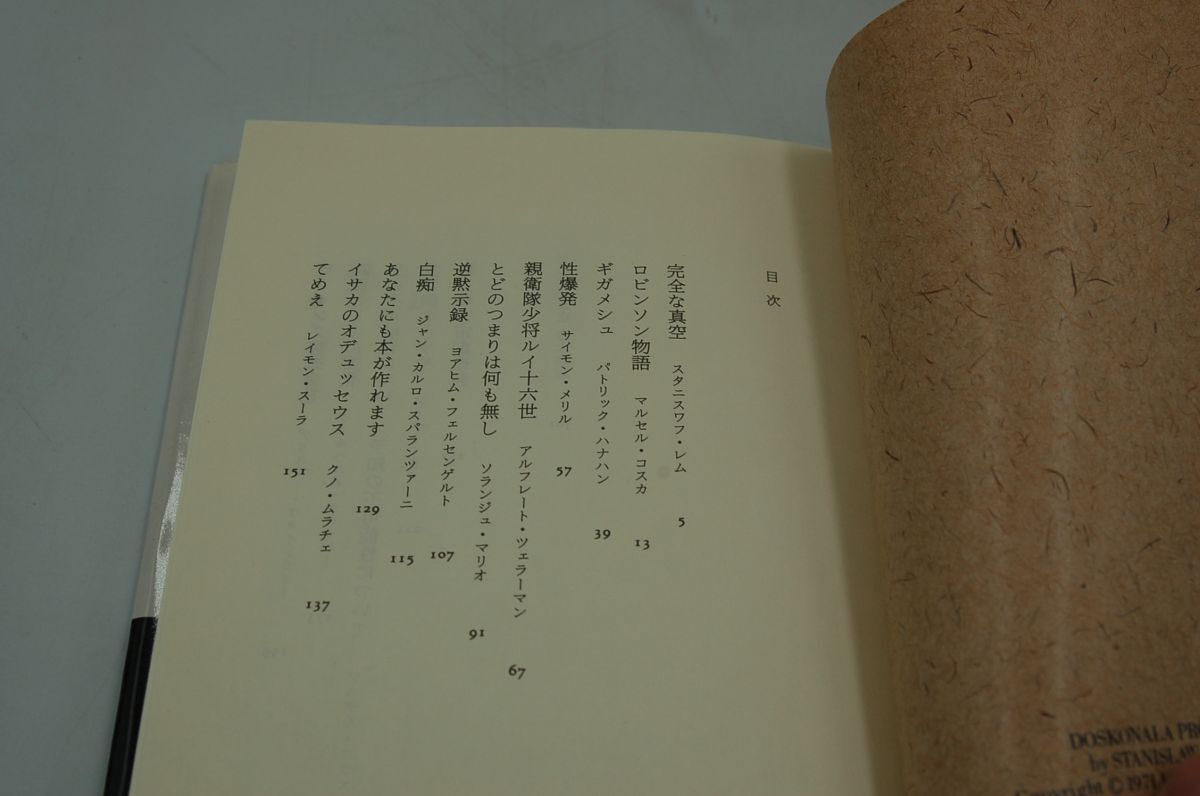 目次
完全な真空 スタニスワフ・レム 5
ロビンソン物語 マルセル・コスカ 13
ギガメシュ パトリック・ハナハン 39
性爆発 サイモン・メリル 57
親衛隊少将ルイ十六世 アルフレート・ツェラーマン 67
とどのつまりは何も無し ソランジュ・マリオ 91
逆黙示録 ヨアヒム・フェルセンゲルト 107
白痴 ジャン・カルロ・スパランツァーニ 115
あなたにも本が作れます 129
イサカのオデュッセウス クノ・ムラチェ 137
てめえ レイモン・スーラ 151
DOSKONALA PR
by STANISLA
Copyright © 1971